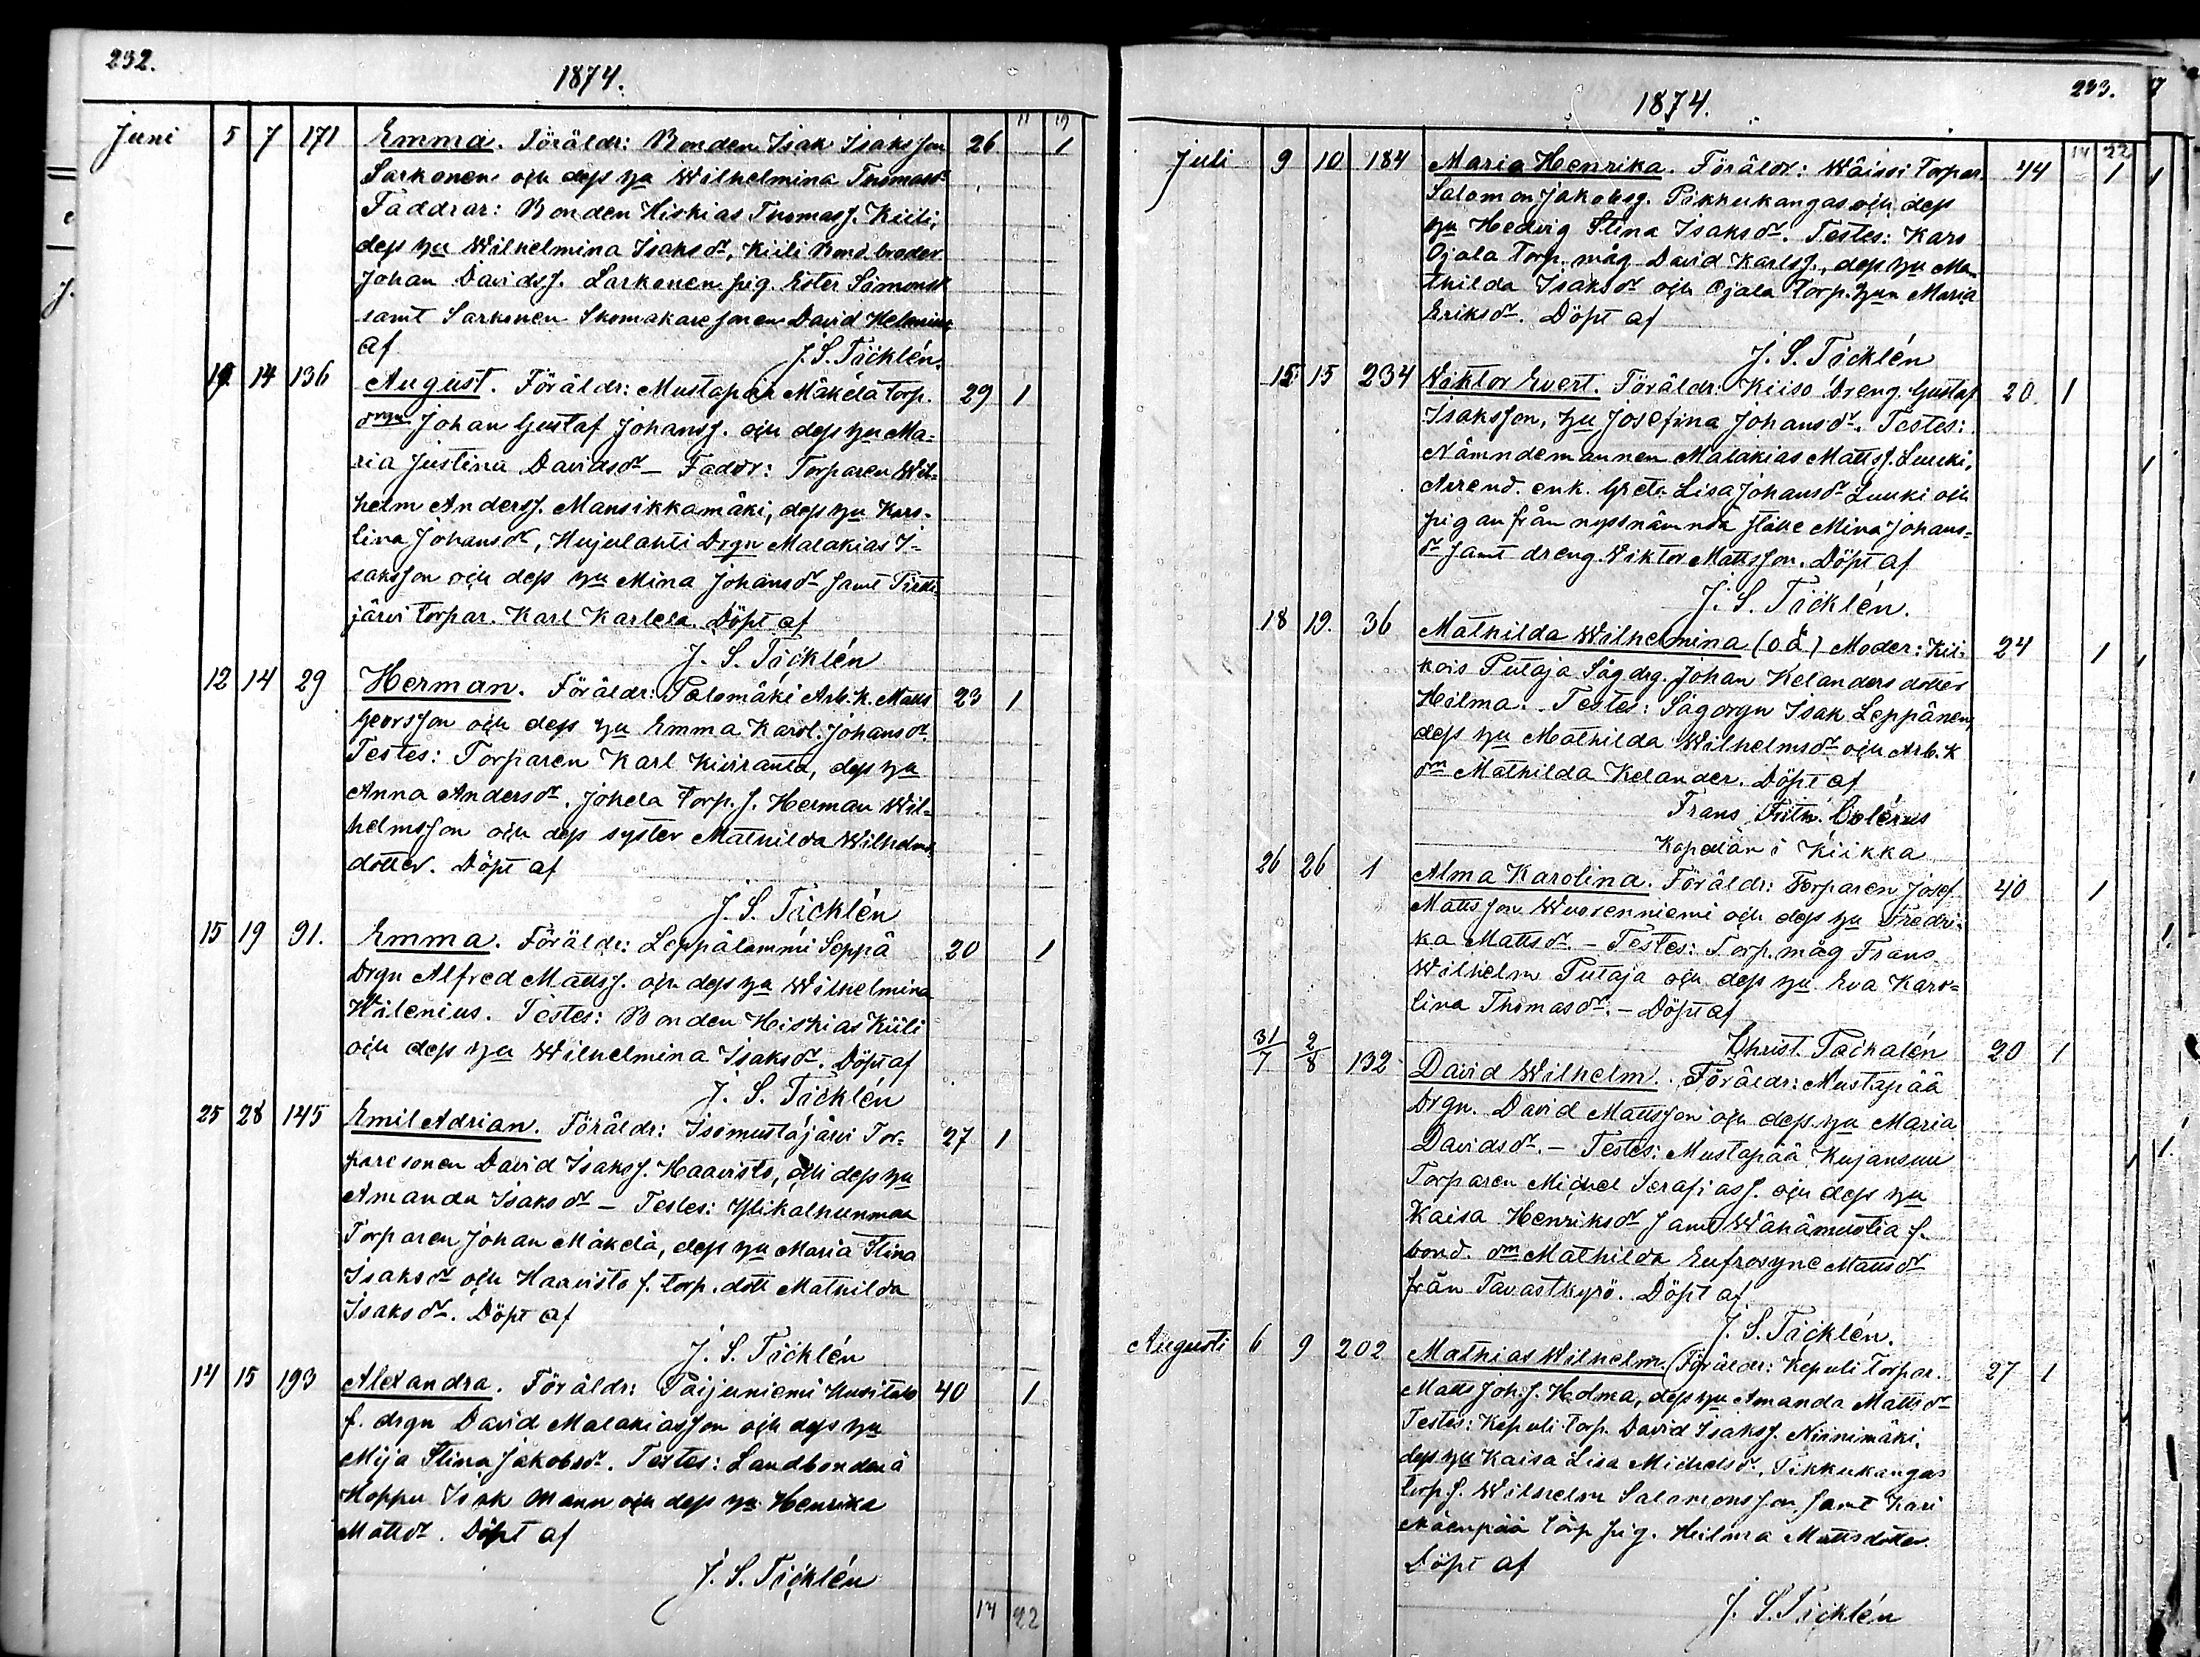 232.
1874.
11 19
Juni 5 7 171 Emma. Föräldr: Bonden Isak Isaksson 26 1
Sarkonen och dess hu Wilhelmina Thomasdr
Faddrar: Bonden Hiskias Thomass. Kiili,
dess hu Wilhelmina Isaksdr, Kiili Bond.broder
Johan Davidss. Sarkonen pig. Ester Simonsdr
samt Sarkonen Skomakaresonen David
af J. S. Täcklén.
14 136 August. Föräldr: Mustapää Mäkelä torp. 29 1
drgn Johan Gustaf Johanss. och dess hu Ma-
ria Justina Davidsdr – Faddr: Torparen Wil-
helm Anderss. Mansikkamäki, dess hu Karo-
lina Johansdr, Hujulahti Drgn Malakias I-
saksson och dess hu Mina Johansdr samt
järvi torpar. Karl Karlela. Döpt af
J. S. Täcklén
12 14 29 Herman. Föräldr: Palomäki Arb.k. Matts 23 1
Georsson och dess hu Emma Karol. Johansdr.
Testes: Torparen Karl Kiviranta, dess hu
Anna Andersdr. Jokela torp. s. Herman Wil-
helmsson och dess syster Mathilda Wilhelms
dotter. Döpt af
J. S. Täcklén
15 19 91. Emma. Föräldr: Leppälammi Seppä 20 1
Drgn Alfred Mattss. och dess hu Wilhelmina
Wilenius. Testes: Bonden Hiskias Kiili
och dess hu Wilhelmina Isaksdr. Döpt af
J. S. Täcklén
25 28 145 Emil Adrian. Föräldr: Isomustajärvi Tor- 27 1
paresonen David Isakss. Haavisto, och dess hu
Amanda Isaksdr – Testes: Ylikalhunmaa
Torparen Johan Mäkelä, dess hu Maria Stina
Isaksdr och Haavisto f. torp. dott Mathilda
Isaksdr. Döpt af
J. S. Täcklén
14 15 193 Alexandra. Föräldr: Paijuniemi Uusitalo 40 1
f. drgn David Malakiasson och dess hu
Maja Stina Jakobsdr. Testes: Landbonden å
Hoppu Isak Mann och dess hu Henrika
Mattsdr. Döpt af
J. S. Täcklén
14 22
233.
1874.
14 22
Juli 9 10 184 Maria Henrika. Föräldr: Wäissi torpar. 44 1
Salomon Jakobss. Pikkukangas och dess
hu Hedvig Stina Isaksdr. Testes: Karo
Ojala torp. måg David Karlss., dess hu Ma-
thilda Isaksdr och Ojala torp. hun Maria
Eriksdr. Döpt af
J. S. Täcklén
15 15 234 Viktor Evert. Föräldr: Kiiso Dreng. Gustaf 20. 1
Isaksson, hu Josefina Johansdr. Testes:
Nämndemannen Malakias Mattss. Luuki,
Arrend. enk. Greta Lisa Johansdr Luuki och
pigan från nyssnämnda ställe Mina Johans-
dr samt dreng. Viktor Mattsson. Döpt af
J. S. Täcklén.
18 19. 36 Mathilda Wilhelmina (oä) Moder: Kil- 24 1
kois Putaja Såg drg. Johan Kelanders dotter
Hilma. Testes: Sågdrgn Isak Leppänen,
dess hu Mathilda Wilhelmsdr och Arb.k
drn Mathilda Kelander. Döpt af
Frans Colérus
Kapellan i Kiikka
26 26 1 Alma Karolina. Föräldr: Torparen Josef 40 1
Mattsson Wuorenniemi och dess hu Fredri-
ka Mattsdr. – Testes: Torp. måg Frans
Wilhelm Putaja och dess hu Eva Karo-
lina Thomasdr. – Döpt af
Christ. Täckalén
31/7 2/8 132 David Wilhelm. Föräldr: Mustapää 20 1
Drgn. David Mattsson och dess hu Maria
Davidsdr. – Testes: Mustapää Kujansuu
Torparen Michel Serafiass. och dess hu
Kaisa Henriksdr samt Wähämustia f.
bond. drn Mathilda Eufrosyne Mattsdr
från Tavastkyrö. Döpt af
J. S. Täcklén.
Augusti 6 9 202 Mathias Wilhelm. Föräldr: Kepuli Torpar. 27 1
Matts Joh. s. Holma, dess hu Amanda Mattsdr
Testes: Kepuli torp. David Isakss. Niinimäki,
dess hu Kaisa Lisa Michelsdr, Pikkukangas
torp s. Wilhelm Salomonsson samt Kari
Mäenpää torp pig. Hilma Mattsdotter
Döpt af
J. S. Täcklén